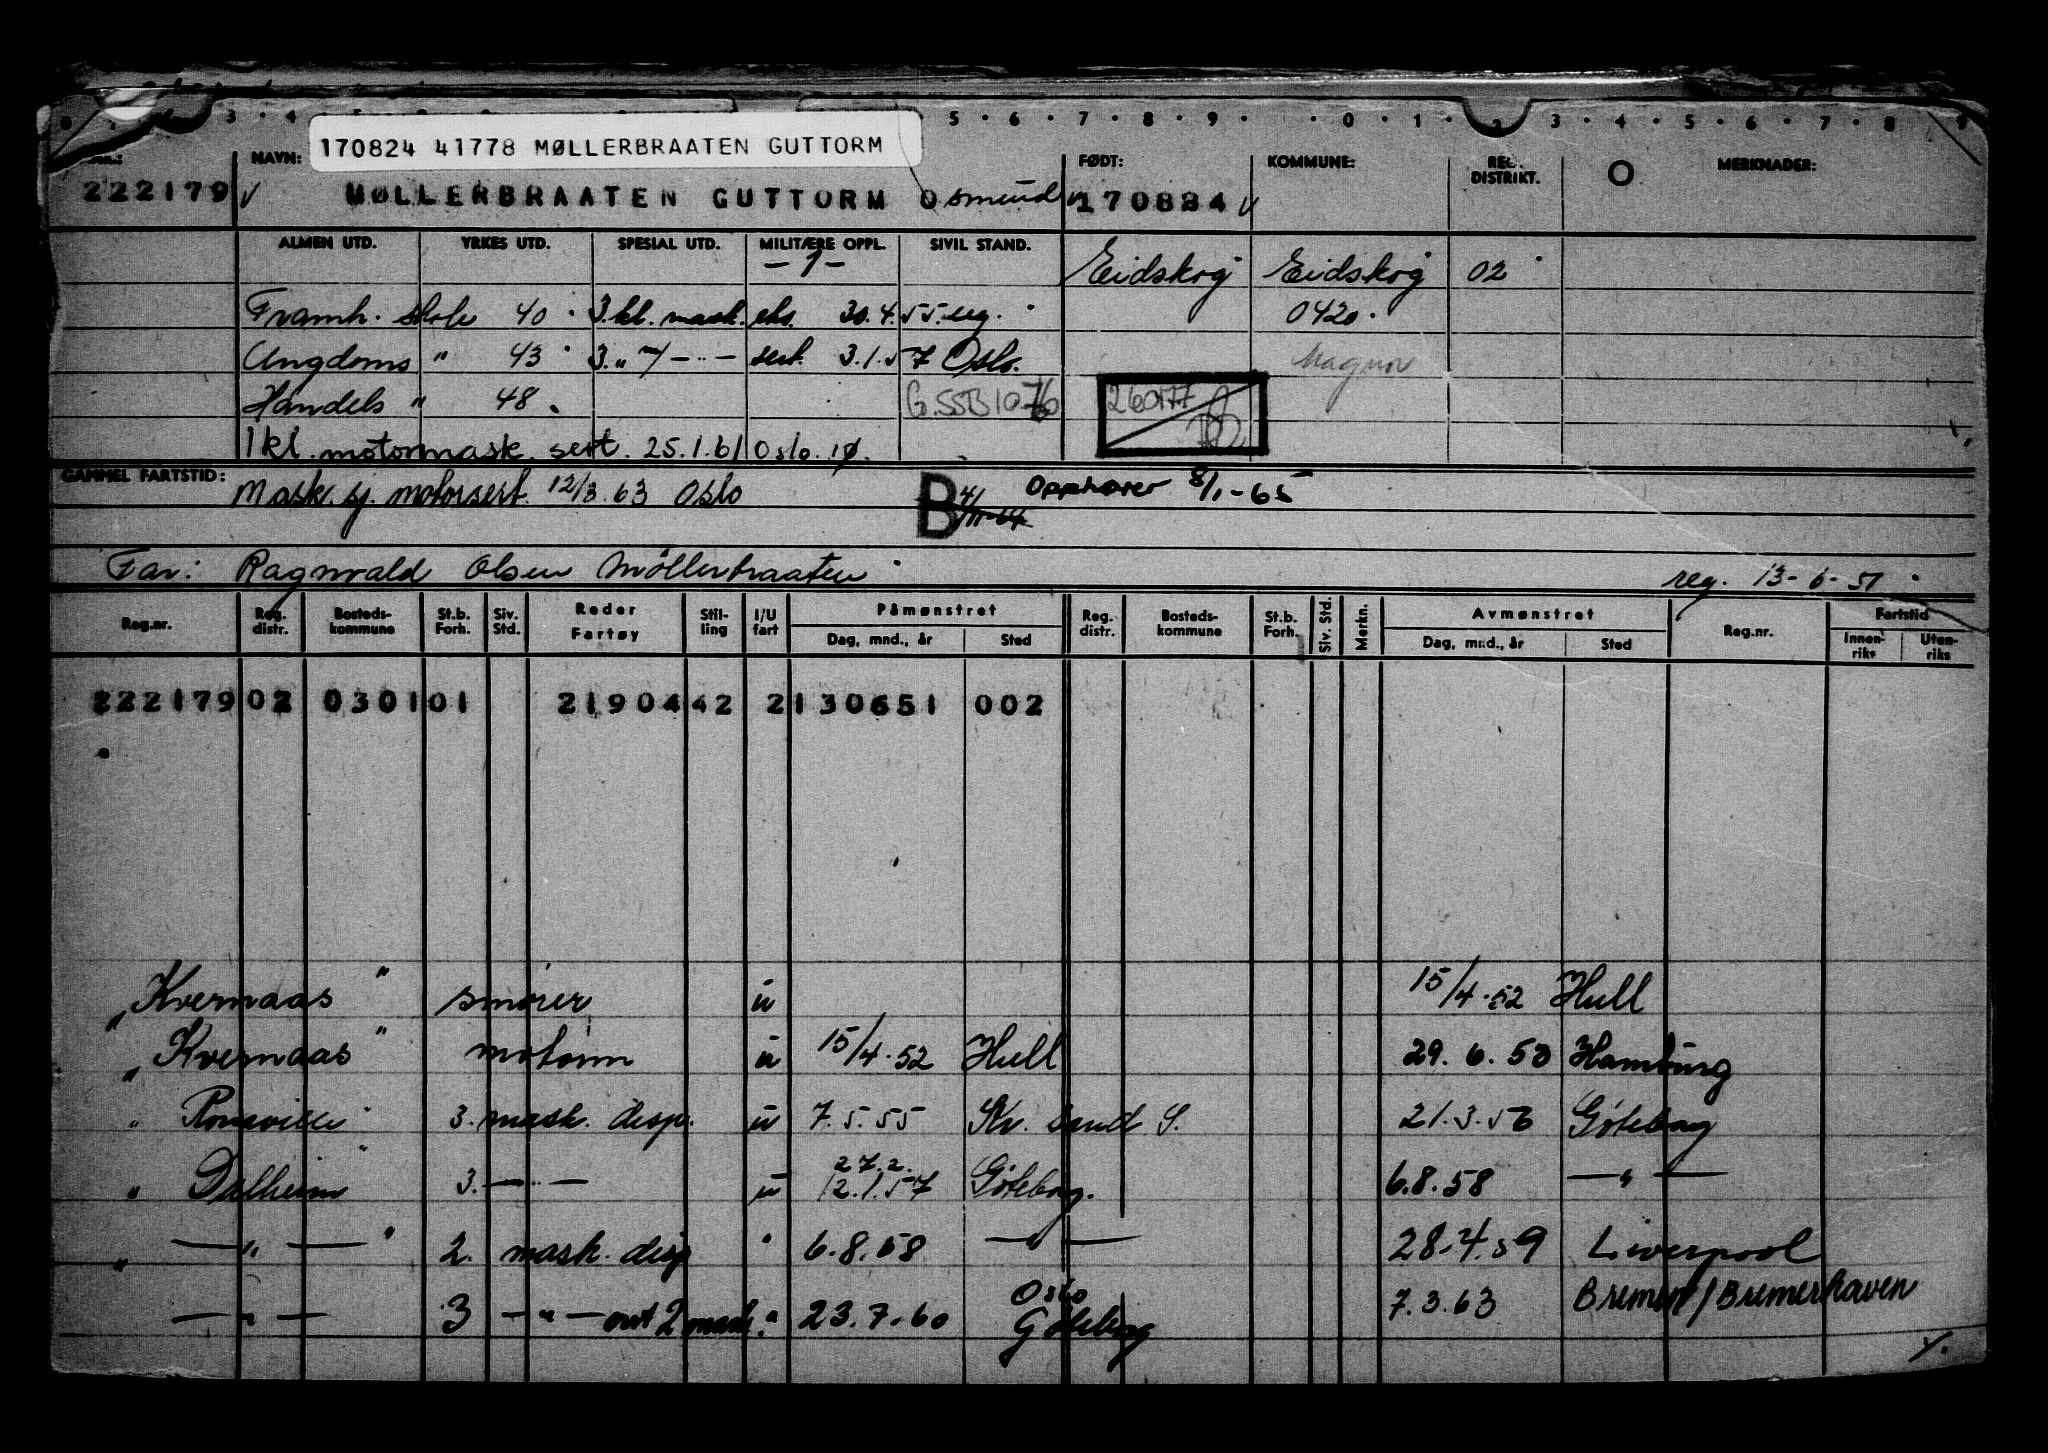 170824 41778 MØLLERBRAATEN GUTTORM
NAVN: FØDT: KOMMUNE: REG. DISTRIKT. O MERKNADER:
222179 MØLLERBRAATEN GUTTORM Osmund 170824
ALMEN UTD. YRKES UTD. SPESIAL UTD. MILITÆRE OPPL. SIVIL STAND.
- 1 -
Eidskog Eidskog 02
Framh. skole 40 3.kl. mask. eks. 30.4.55. ug. 0420.
Ungdoms " 43 3. " - " - sert. 3.1.57 Oslo. Magnor
Handels " 48. G.SSB 10-76 260177
1 kl. motormask. sert. 25.1.61 Oslo.
GAMMEL FARTSTID: Mask. sj. motorsert. 12/3.63 Oslo B 4/11-64 Opphører 8/1-65
Far: Ragnvald Olsen Møllerbraaten reg. 13-6-51
Reg.nr. Reg. distr. Bosteds-kommune St.b. Forh. Siv. Std. Reder Fartøy Stil-ling I/U fart Påmønstret Dag, mnd., år Sted Reg. distr. Bosteds-kommune St.b. Forh. Siv. Std. Merkn. Avmønstret Dag, mnd., år Sted Reg.nr. Fartstid Innen-riks Uten-riks
222179 02 0301 01 2190442 2 130651 002
" Kvernaas " smører u 15/4.52 Hull
" Kvernaas " motorm u 15/4.52 Hull 29.6.53 Hamburg
" Ronsville " 3. mask. disp. u 7.5.55 Kr. sand S. 21.3.56 Göteborg
" Dalheim " 3. - " - u 27.2. 12.1.57 Göteborg. 6.8.58 - " -
" - " - " 2. mask. disp " 6.8.58 - " - 28.4.59 Liverpool
- " - 3 - " - ant 2 mask. " 23.7.60 Oslo Göteborg 7.3.63 Bremen/Bremerhaven